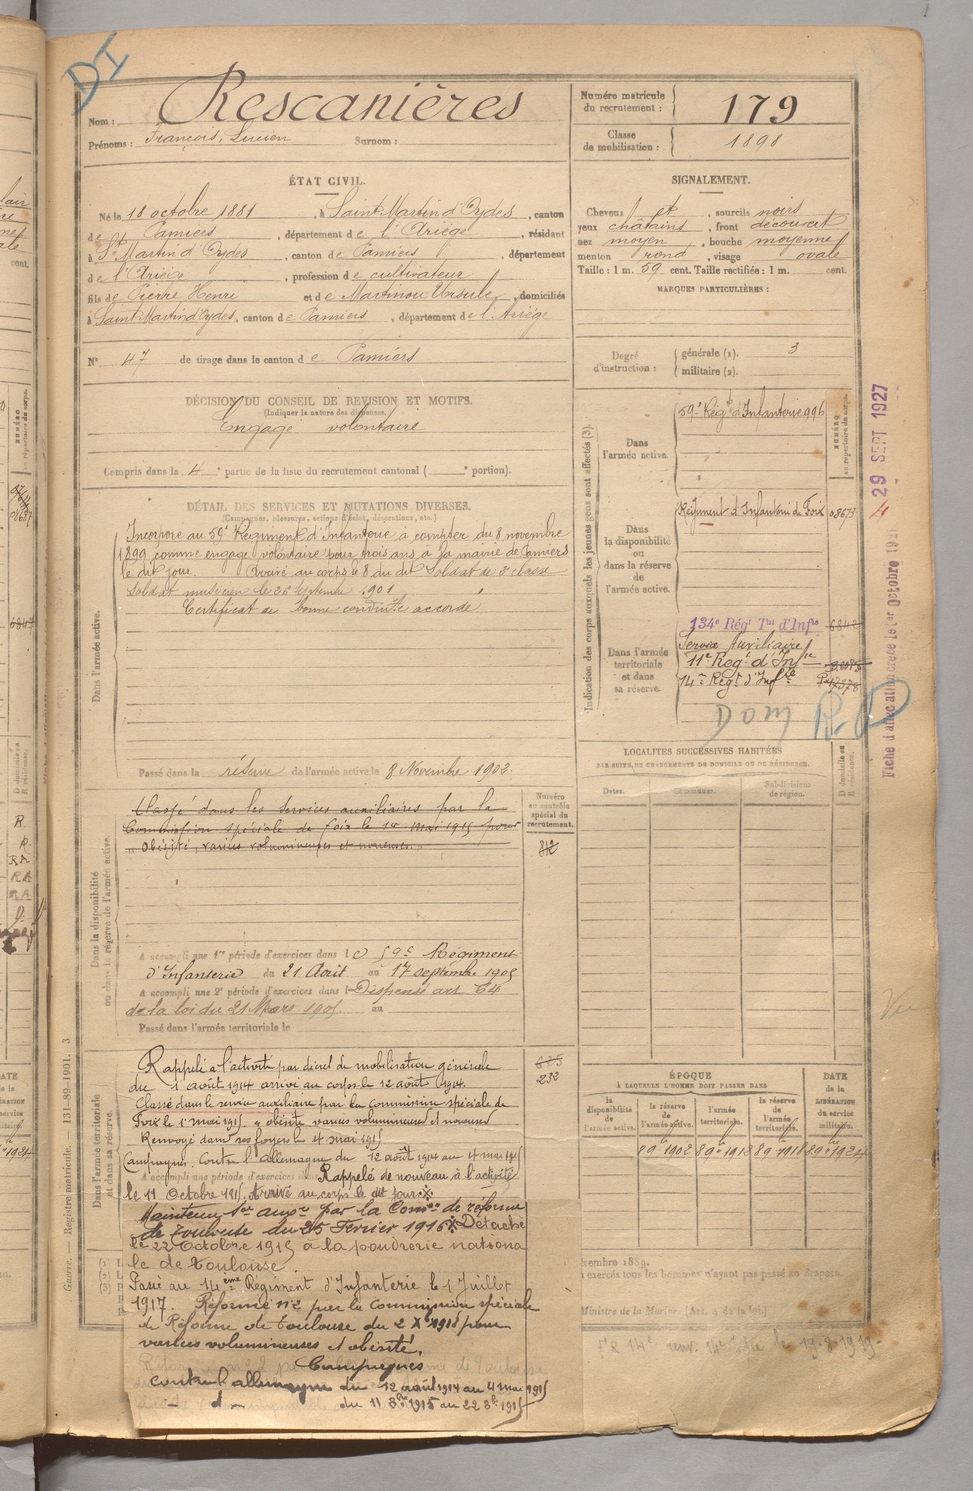 DI
Nom : Rescanières
Prénoms : François, Lucien Surnom :
Numéro matricule du recrutement : 179
Classe de mobilisation : 1898
ÉTAT CIVIL.
Né le 18 octobre 1881, à Saint-Martin d'Oydes, canton
de Pamiers, département de l'Ariège, résidant
à St Martin d'Oydes, canton de Pamiers, département
de l'Ariège, profession de cultivateur
fils de Pierre Henri et de Martinou Ursule, domiciliés
à Saint-Martin d'Oydes, canton de Pamiers, département de l'Ariège
N° 47 de tirage dans le canton de Pamiers
SIGNALEMENT.
Cheveux et, sourcils noirs
yeux châtains, front découvert
nez moyen, bouche moyenne
menton rond, visage ovale
Taille : 1 m. 59 cent. Taille rectifiée : 1 m. cent.
MARQUES PARTICULIÈRES :
Degré d'instruction : générale (1). 3
militaire (2).
DÉCISION DU CONSEIL DE REVISION ET MOTIFS.
(Indiquer la nature des dispenses.)
Engagé volontaire
Compris dans la 4e partie de la liste du recrutement cantonal ( e portion).
DÉTAIL DES SERVICES ET MUTATIONS DIVERSES.
(Campagnes, blessures, actions d'éclat, décorations, etc.)
Dans l'armée active.
Incorporé au 59e Régiment d'Infanterie à compter du 8 novembre
1899 comme engagé volontaire pour trois ans à la mairie de Pamiers
le dit jour. Arrivé au corps le 8 du dit Soldat de 2e classe
Soldat musicien le 25 septembre 1901
Certificat de bonne conduite accordé
Passé dans la réserve de l'armée active le 8 Novembre 1902.
Dans la disponibilité ou dans la réserve de l'armée active.
Classé dans les services auxiliaires par la
Commission spéciale de Foix le 1er Mai 1915 pour
"Obésité, varices volumineuses et noueuses."
Numéro au contrôle spécial du recrutement.
A accompli une 1re période d'exercices dans le 59e Régiment
d'Infanterie du 21 Août au 17 septembre 1905
A accompli une 2e période d'exercices dans l Dispensé art. 64
de la loi du 21 Mars 1905 au
Passé dans l'armée territoriale le
Dans l'armée territoriale et dans sa réserve.
Rappelé à l'activité par décret de mobilisation générale
du 1 août 1914 arrivé au corps le 12 août 1914.
Classé dans le service auxiliaire par la commission spéciale de
Foix le 1 mai 1915 "obésité varices volumineuses et noueuses
Renvoyé dans ses foyers le 4 mai 1915
Campagnes: Contre l'allemagne du 12 août 1914 au 4 mai 1915
A accompli une période d'exercices dans Rappelé de nouveau à l'activité
le 11 Octobre 1915. Arrivé au corps le dit jour
Maintenu Ser auxre par la Comon de réforme
de Toulouse du 25 Février 1916 Détaché
le 22 Octobre 1915 à la poudrerie nationa
le de Toulouse.
Passé au 14ème Régiment d'Infanterie le 1 Juillet
1917. Réformé n°2 par la Commission spéciale
de Réforme de Toulouse du 2 Xbre 1918 pour
varices volumineuses et obésité.
Campagnes
contre l'allemagne du 12 août 1914 au 4 mai 1915
— d — du 11 8bre 1915 au 22 8bre 1915
232
Indication des corps auxquels les jeunes gens sont affectés (3).
NUMÉRO au répertoire du corps.
Dans l'armée active.
59e Régt d'Infanterie 996
Dans la disponibilité ou dans la réserve de l'armée active.
Régiment d'Infanterie de Foix 08673
Dans l'armée territoriale et dans sa réserve.
134e Régt Tal d'Infie
Service Auxiliaire
11e Régt d'Infie
14e Régt d'Infie
Dom R.D
LOCALITÉS SUCCESSIVES HABITÉES
PAR SUITE DE CHANGEMENTS DE DOMICILE OU DE RÉSIDENCE.
Dates. Communes. Subdivisions de région. D domicile ou R résidence.
ÉPOQUE
À LAQUELLE L'HOMME DOIT PASSER DANS
la disponibilité de l'armée active. la réserve de l'armée active. l'armée territoriale. la réserve de l'armée territoriale.
DATE de la LIBÉRATION du service militaire.
8 9bre 1902 8 9bre 1912 8 9bre 1918
cembre 1889.
Ministère de la Marine. (Art. 4 de la loi.)
29 SEPT 1927
Guerre. — Registre matricule. — 131-89-1901. 3